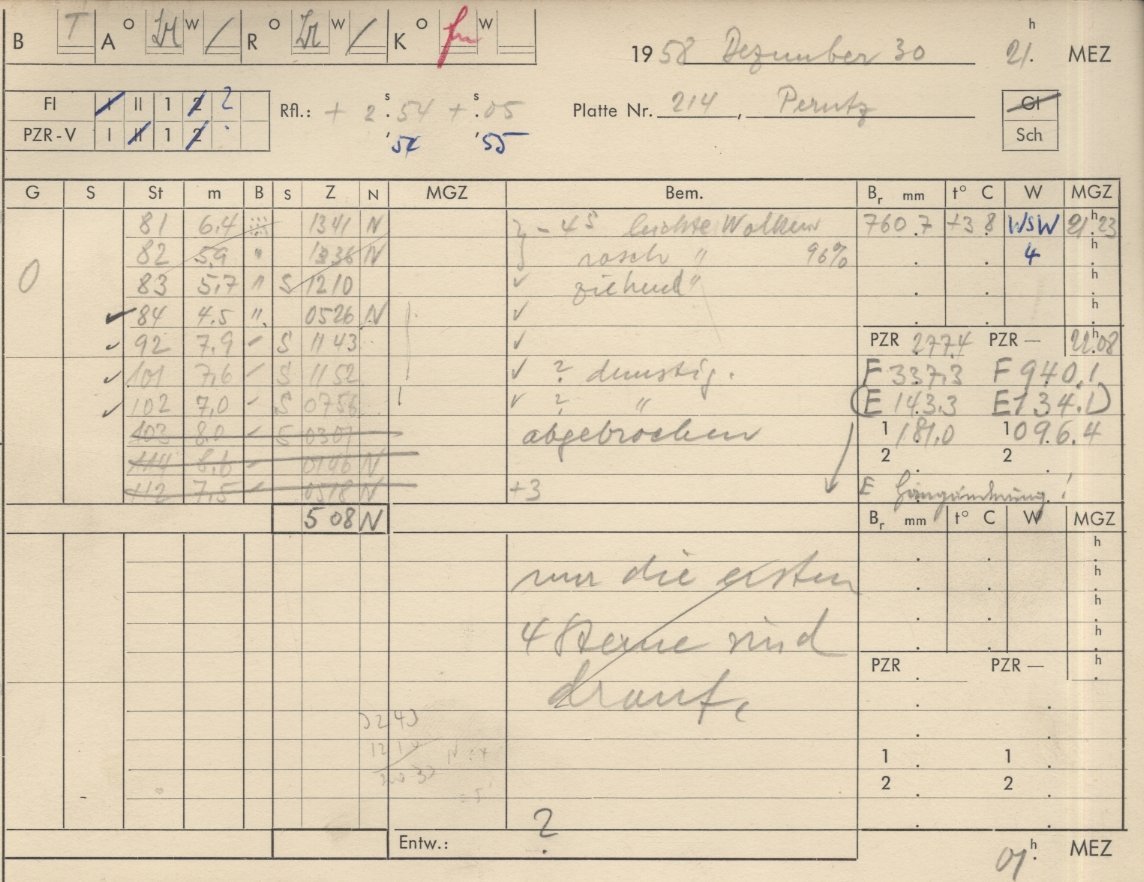 B T A O W / R O W / K O W
1958 Dezember 30 21. h MEZ
Fl I II 1 2 ?
PZR-V I II 1 2
Rfl.: + 2 s. 54 + s. 05
'54 '55
Platte Nr. 214, Perutz
Cl
Sch
G S St m B S Z N MGZ Bem. Br mm t° C W MGZ
81 6.4 1341 N } - 4 s leichte Wolken 760.7 +3.8 WSW 21 h 23
82 5.9 " 1336 N rasch " 96% 4 h
0 83 5.7 " S 1210 ✓ ziehend " h
✓ 84 4.5 " 0526 N ✓ h
✓ 92 7.9 S 1143 ✓ PZR 277.4 PZR — 22.08 h
✓ 101 7.6 S 1152 ✓ ? dunstig. F 337.3 F 940.1
✓ 102 7.0 S 0756 ✓ ? " (E 143.3 E 134.1)
103 8.0 S 0307 abgebrochen 1 181.0 1 096.4
114 8.6 0146 N 2 2
112 7.5 0518 N +3 E !
508 N Br mm t° C W MGZ
h
nur die ersten h
h
4 Sterne sind h
PZR PZR — h
drauf.
3243
1210 1 1
2033 2 2
Entw.: ?
01 h. MEZ